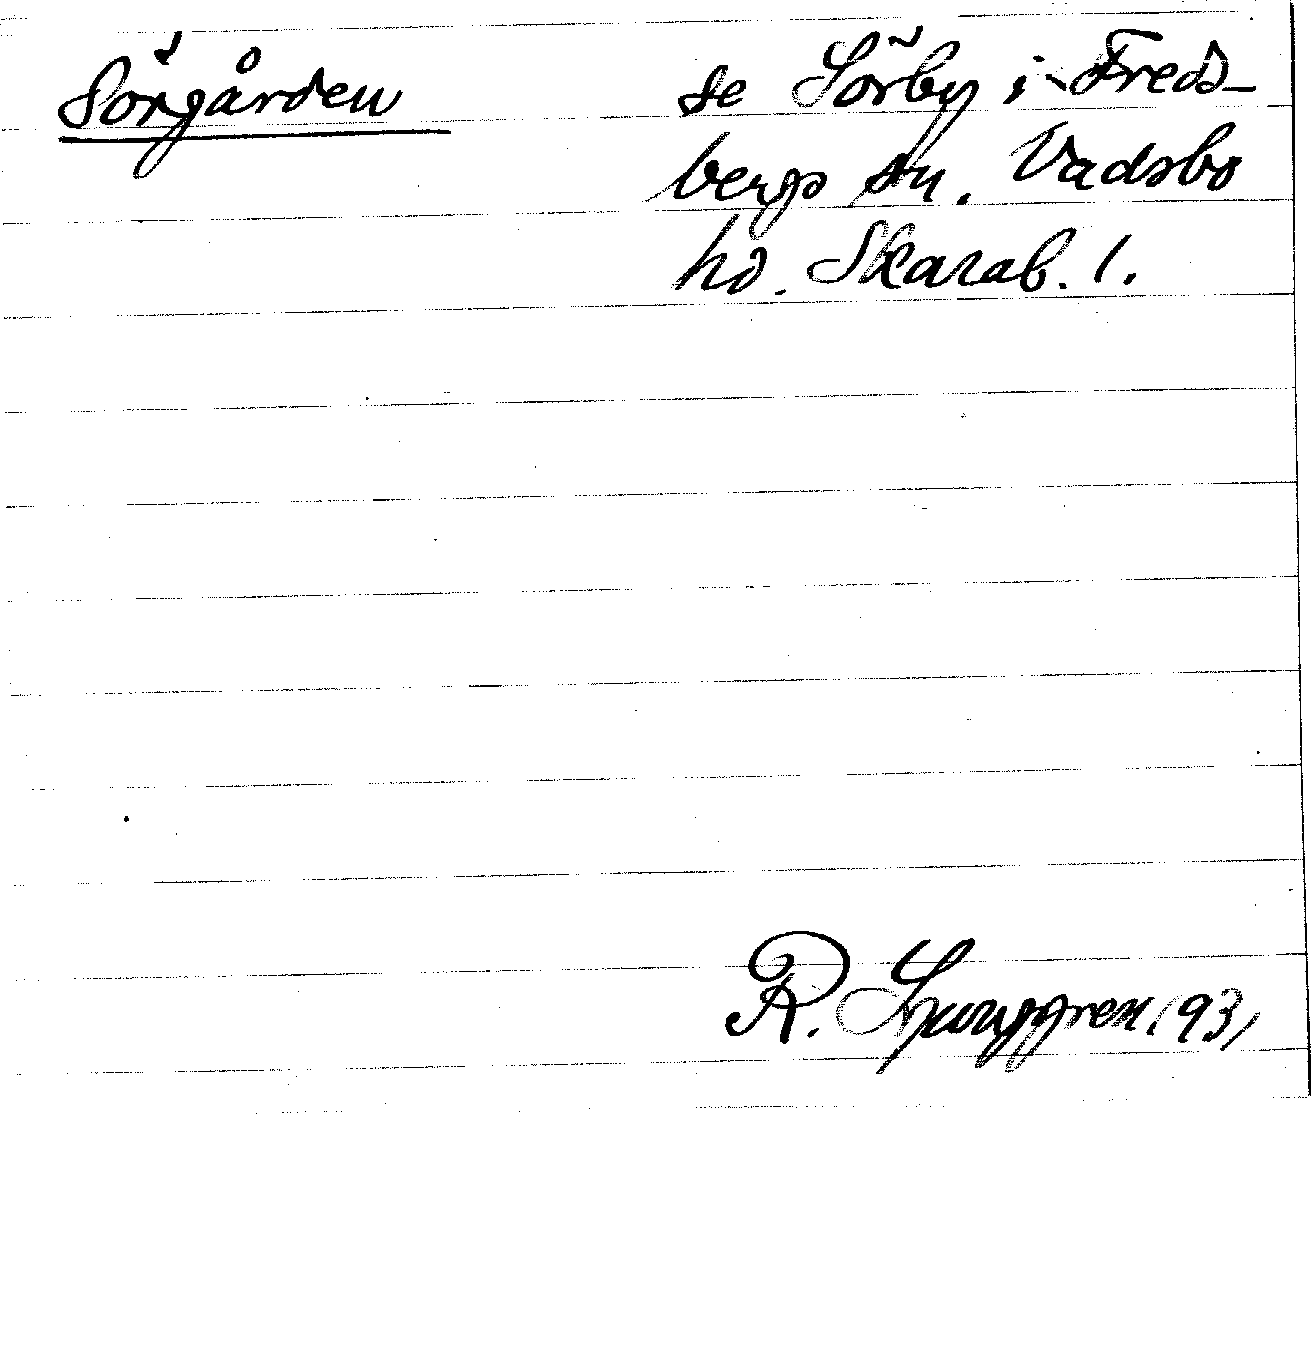 Sörgården
se Sörby i Freds-
bergs sn. Vadsbo
hd. Skarab. l.
R. Ljunggren 1931